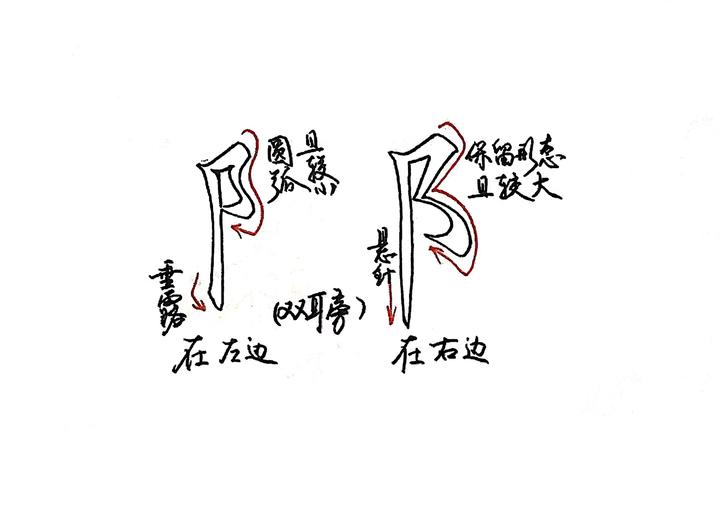 圆且
弧较小
保留形态
且较大
垂露
悬针
(双耳旁)
在左边
在右边